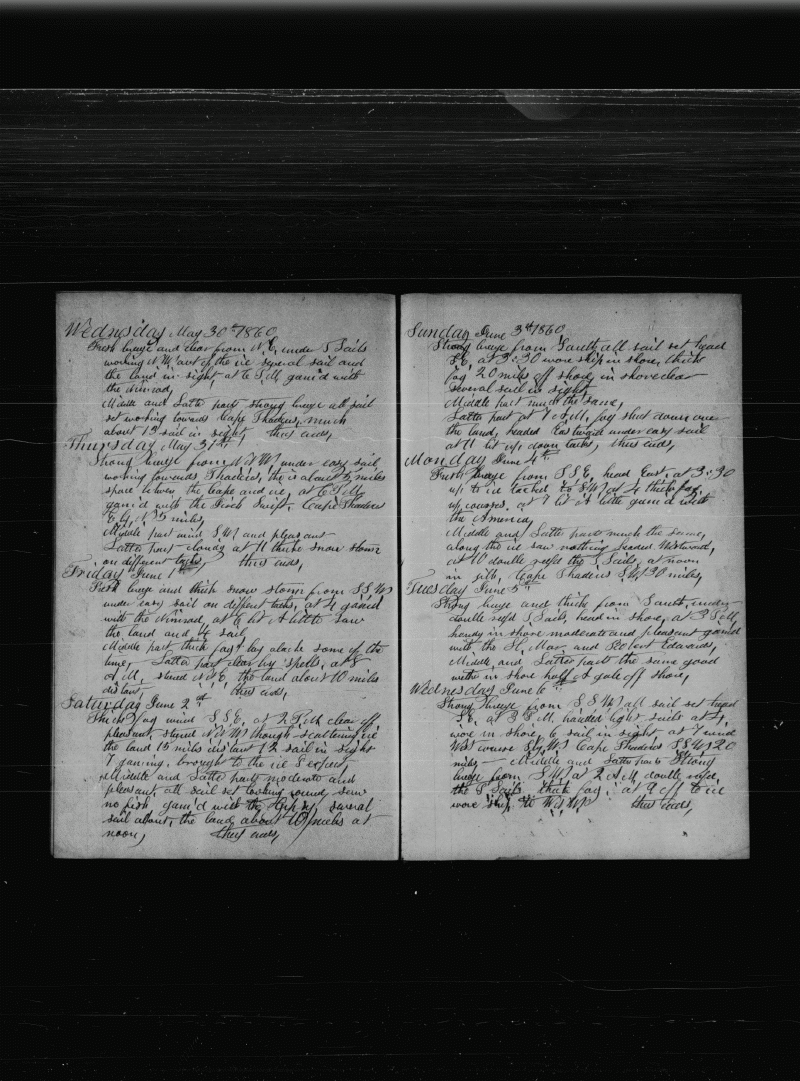 Wednesday May 30th 1860
Fresh breeze and clear from N.E. under T Sails
working N.W. out of the ice several sail and
the land in sight, at 6 P.M. gam'd with
the Nimrod,
Middle and Latter parts strong breeze all sail
set working towards Cape Thadeus, much
about 13 sail in sight, thus ends,
Thursday May 31st
Strong breeze from N.W. under easy sail
working towards Thadeus, there is about 5 miles
space between the Cape and ice, at 6 P.M.
gam'd with the Fleet Cape Thadeus
35 miles,
Middle part wind S.W. and pleasant
Latter part cloudy at 11 thick snow storm
on different tacks, thus ends,
Friday June 1st
Fresh breeze and thick snow storm from S.S.W.
under easy sail on diffent tacks, at 4 gamed
with the Nimrod, at 6 let A little saw
the land and 4 sail
Middle part thick fog lay aback some of the
time, Latter part clear by spells, at 8
A.M. stered N.E. the land about 10 miles
distant, thus ends,
Saturday June 2nd
Thick fog wind S.S.E. at 2 P.M. clear off
pleasant, stered N.W. though scattering ice
the land 15 miles distant 12 sail in sight
7 gaming, brought to the ice I expect,
Middle and Latter parts moderate and
pleasant all sail set looking round, seen
no fish, gam'd with the Gipsy, several
sail about, the land about 10 miles at
noon, thus ends,
Sunday June 3rd 1860
Strong breeze from South all sail set head
S.E. at 3:30 wore ship in shore, thick
fog 20 miles off shore, in shore clear
several sail in sight
Middle part much the same,
Latter part at 1 A.M. fog shut down over
the land, headed Eastward under easy sail
at 11 let up, down tacks, thus ends,
Monday June 4th
Fresh breeze from S.S.E. head East, at 3:30
up to ice tacked to S.W. at 4 thick fog
up courses, at 7 let A little gam'd with
the America,
Middle and Latter parts much the same,
along the ice saw nothing headed Westward,
at 10 double reeft the T Sails, at noon
Cape Thadeus S.W. 30 miles,
Tuesday June 5th
Strong breeze and thick from South, under
double refd T Sails, head in shore, at 3 P.M.
handy in shore moderate and pleasant gam'd
with the and Robert Edwards,
Middle and Latter parts the same good
wether in shore half A gale off shore,
Wednesday June 6th
Strong breeze from S.S.W. all sail set head
S.E. at 3 P.M. hauled light sails at 4,
wore in shore, 6 sail in sight, at 7 wind
West course Cape Thadeus S.S.W. 20
miles Middle and Latter parts Strong
breeze from S.W. at 2 A.M. double refd,
the T Sails, thick fog, at 9 off to ice
wore ship to thus ends,